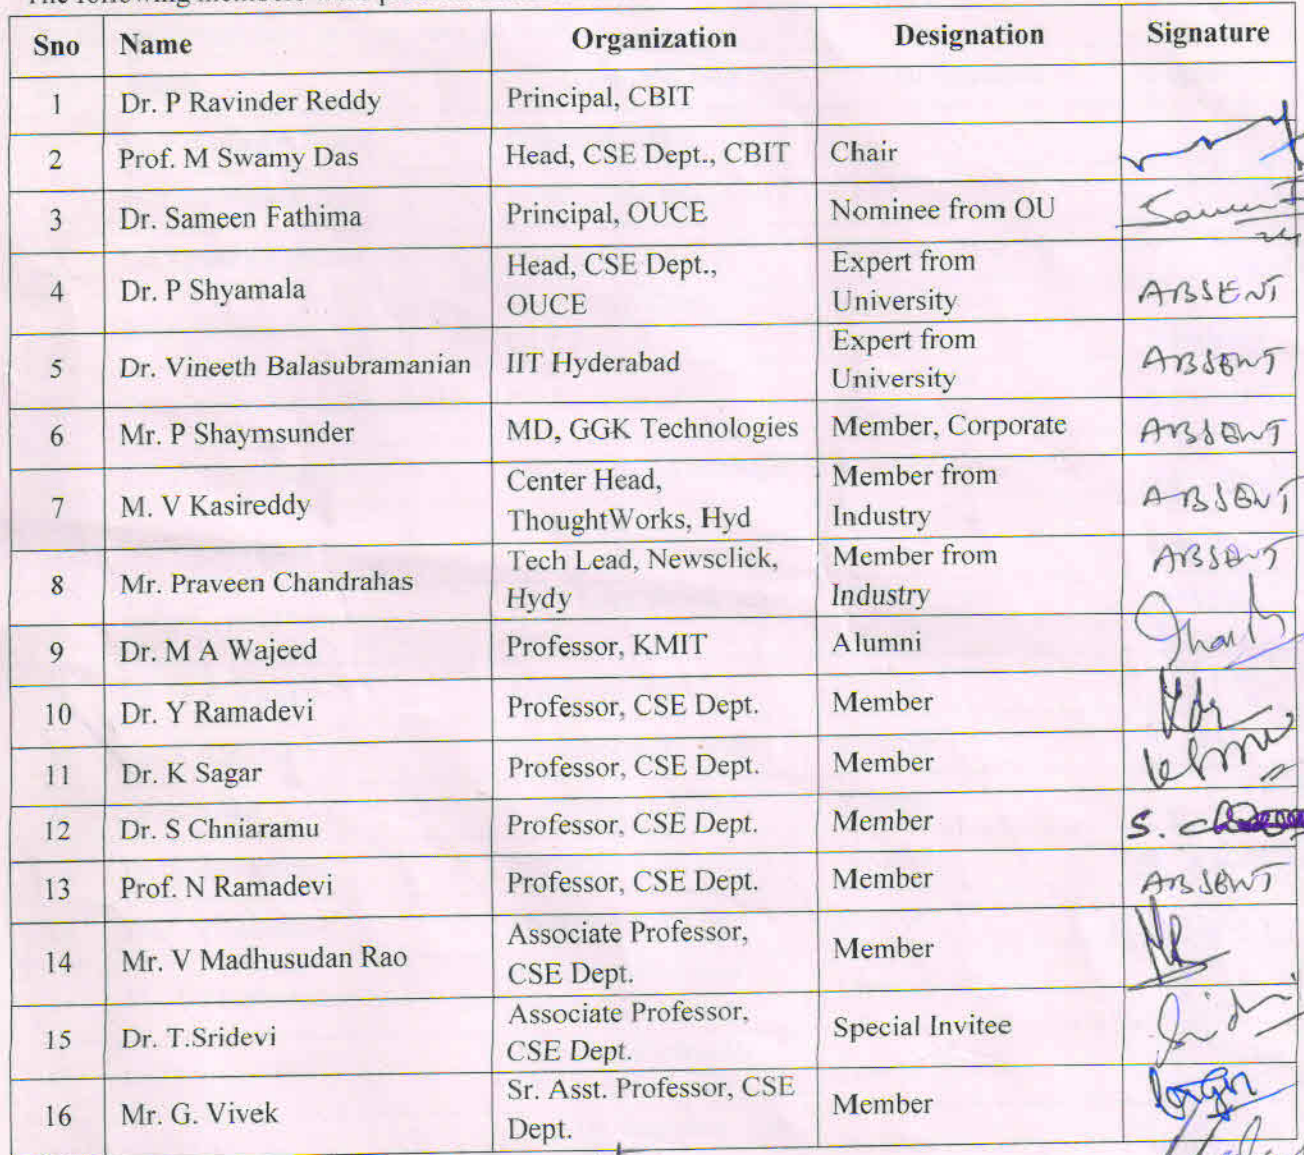 The following members
Sno Name Organization Designation Signature
1 Dr. P Ravinder Reddy Principal, CBIT
2 Prof. M Swamy Das Head, CSE Dept., CBIT Chair
3 Dr. Sameen Fathima Principal, OUCE Nominee from OU
4 Dr. P Shyamala Head, CSE Dept.,
OUCE Expert from
University ABSENT
5 Dr. Vineeth Balasubramanian IIT Hyderabad Expert from
University ABSENT
6 Mr. P Shaymsunder MD, GGK Technologies Member, Corporate ABSENT
7 M. V Kasireddy Center Head,
ThoughtWorks, Hyd Member from
Industry ABSENT
8 Mr. Praveen Chandrahas Tech Lead, Newsclick,
Hydy Member from
Industry ABSENT
9 Dr. M A Wajeed Professor, KMIT Alumni
10 Dr. Y Ramadevi Professor, CSE Dept. Member
11 Dr. K Sagar Professor, CSE Dept. Member
12 Dr. S Chniaramu Professor, CSE Dept. Member S
13 Prof. N Ramadevi Professor, CSE Dept. Member ABSENT
14 Mr. V Madhusudan Rao Associate Professor,
CSE Dept. Member
15 Dr. T.Sridevi Associate Professor,
CSE Dept. Special Invitee
16 Mr. G. Vivek Sr. Asst. Professor, CSE
Dept. Member